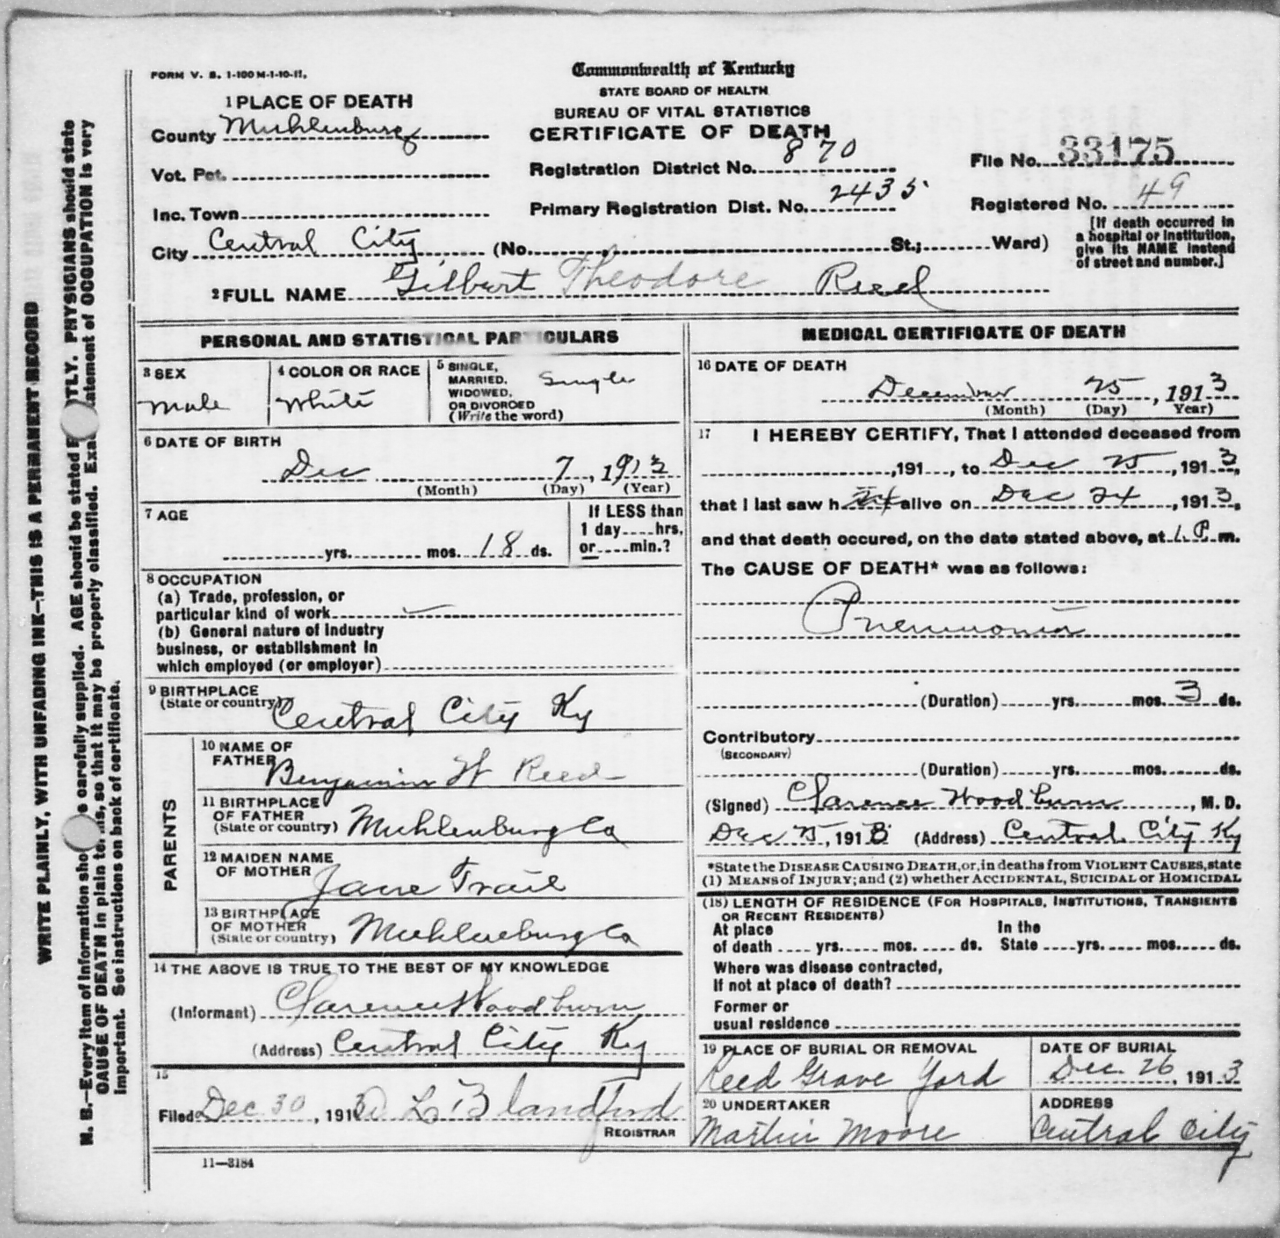 FORM V. S. 1-100 M-1-10-11.
Commonwealth of Kentucky
STATE BOARD OF HEALTH
BUREAU OF VITAL STATISTICS
CERTIFICATE OF DEATH
1 PLACE OF DEATH
County Muhlenburg
Vot. Pct.
Inc. Town
City Central City (No. St.; Ward)
Registration District No. 870
Primary Registration Dist. No. 2435
File No. 33175
Registered No. 49
[If death occurred in
a hospital or institution,
give its NAME instead
of street and number.]
2 FULL NAME Gilbert Theodore Reed
PERSONAL AND STATISTICAL PARTICULARS
3 SEX
Male
4 COLOR OR RACE
White
5 SINGLE,
MARRIED,
WIDOWED,
OR DIVORCED
(Write the word)
Single
6 DATE OF BIRTH
Dec 7, 1913
(Month) (Day) (Year)
7 AGE
yrs. mos. 18 ds.
If LESS than
1 day hrs,
or min.?
8 OCCUPATION
(a) Trade, profession, or
particular kind of work
(b) General nature of industry
business, or establishment in
which employed (or employer)
9 BIRTHPLACE
(State or country) Central City Ky
PARENTS
10 NAME OF
FATHER Benjamin W Reed
11 BIRTHPLACE
OF FATHER
(State or country) Muhlenburg Co
12 MAIDEN NAME
OF MOTHER Jane Trail
13 BIRTHPLACE
OF MOTHER
(State or country) Muhlenburg Co
14 THE ABOVE IS TRUE TO THE BEST OF MY KNOWLEDGE
(Informant) Clarence Woodburn
(Address) Central City Ky
15
Filed Dec 30, 1913 D L Blandford
REGISTRAR
11—3184
MEDICAL CERTIFICATE OF DEATH
16 DATE OF DEATH
December 25, 1913
(Month) (Day) Year)
17 I HEREBY CERTIFY, That I attended deceased from
,191 , to Dec 25, 1913,
that I last saw h alive on Dec 24, 1913,
and that death occured, on the date stated above, at 1 P. m.
The CAUSE OF DEATH* was as follows:
Pneumonia
(Duration) yrs. mos. 3 ds.
Contributory
(SECONDARY)
(Duration) yrs. mos. ds.
(Signed) Clarence Woodburn, M. D.
Dec 25, 1913 (Address) Central City Ky
*State the DISEASE CAUSING DEATH, or, in deaths from VIOLENT CAUSES, state
(1) MEANS of INJURY; and (2) whether ACCIDENTAL, SUICIDAL or HOMICIDAL
(18) LENGTH OF RESIDENCE (FOR HOSPITALS, INSTITUTIONS, TRANSIENTS
OR RECENT RESIDENTS)
At place In the
of death yrs. mos. ds. State yrs. mos. ds.
Where was disease contracted,
If not at place of death?
Former or
usual residence
19 PLACE OF BURIAL OR REMOVAL
Reed Grave Yard
DATE OF BURIAL
Dec. 26, 1913
20 UNDERTAKER
Martin Moore
ADDRESS
Central City
WRITE PLAINLY, WITH UNFADING INK—THIS IS A PERMANENT RECORD
N. B.—Every item of information should be carefully supplied. AGE should be stated EXACTLY. PHYSICIANS should state
CAUSE OF DEATH in plain terms, so that it may be properly classified. Exact statement of OCCUPATION is very
important. See instructions on back of certificate.